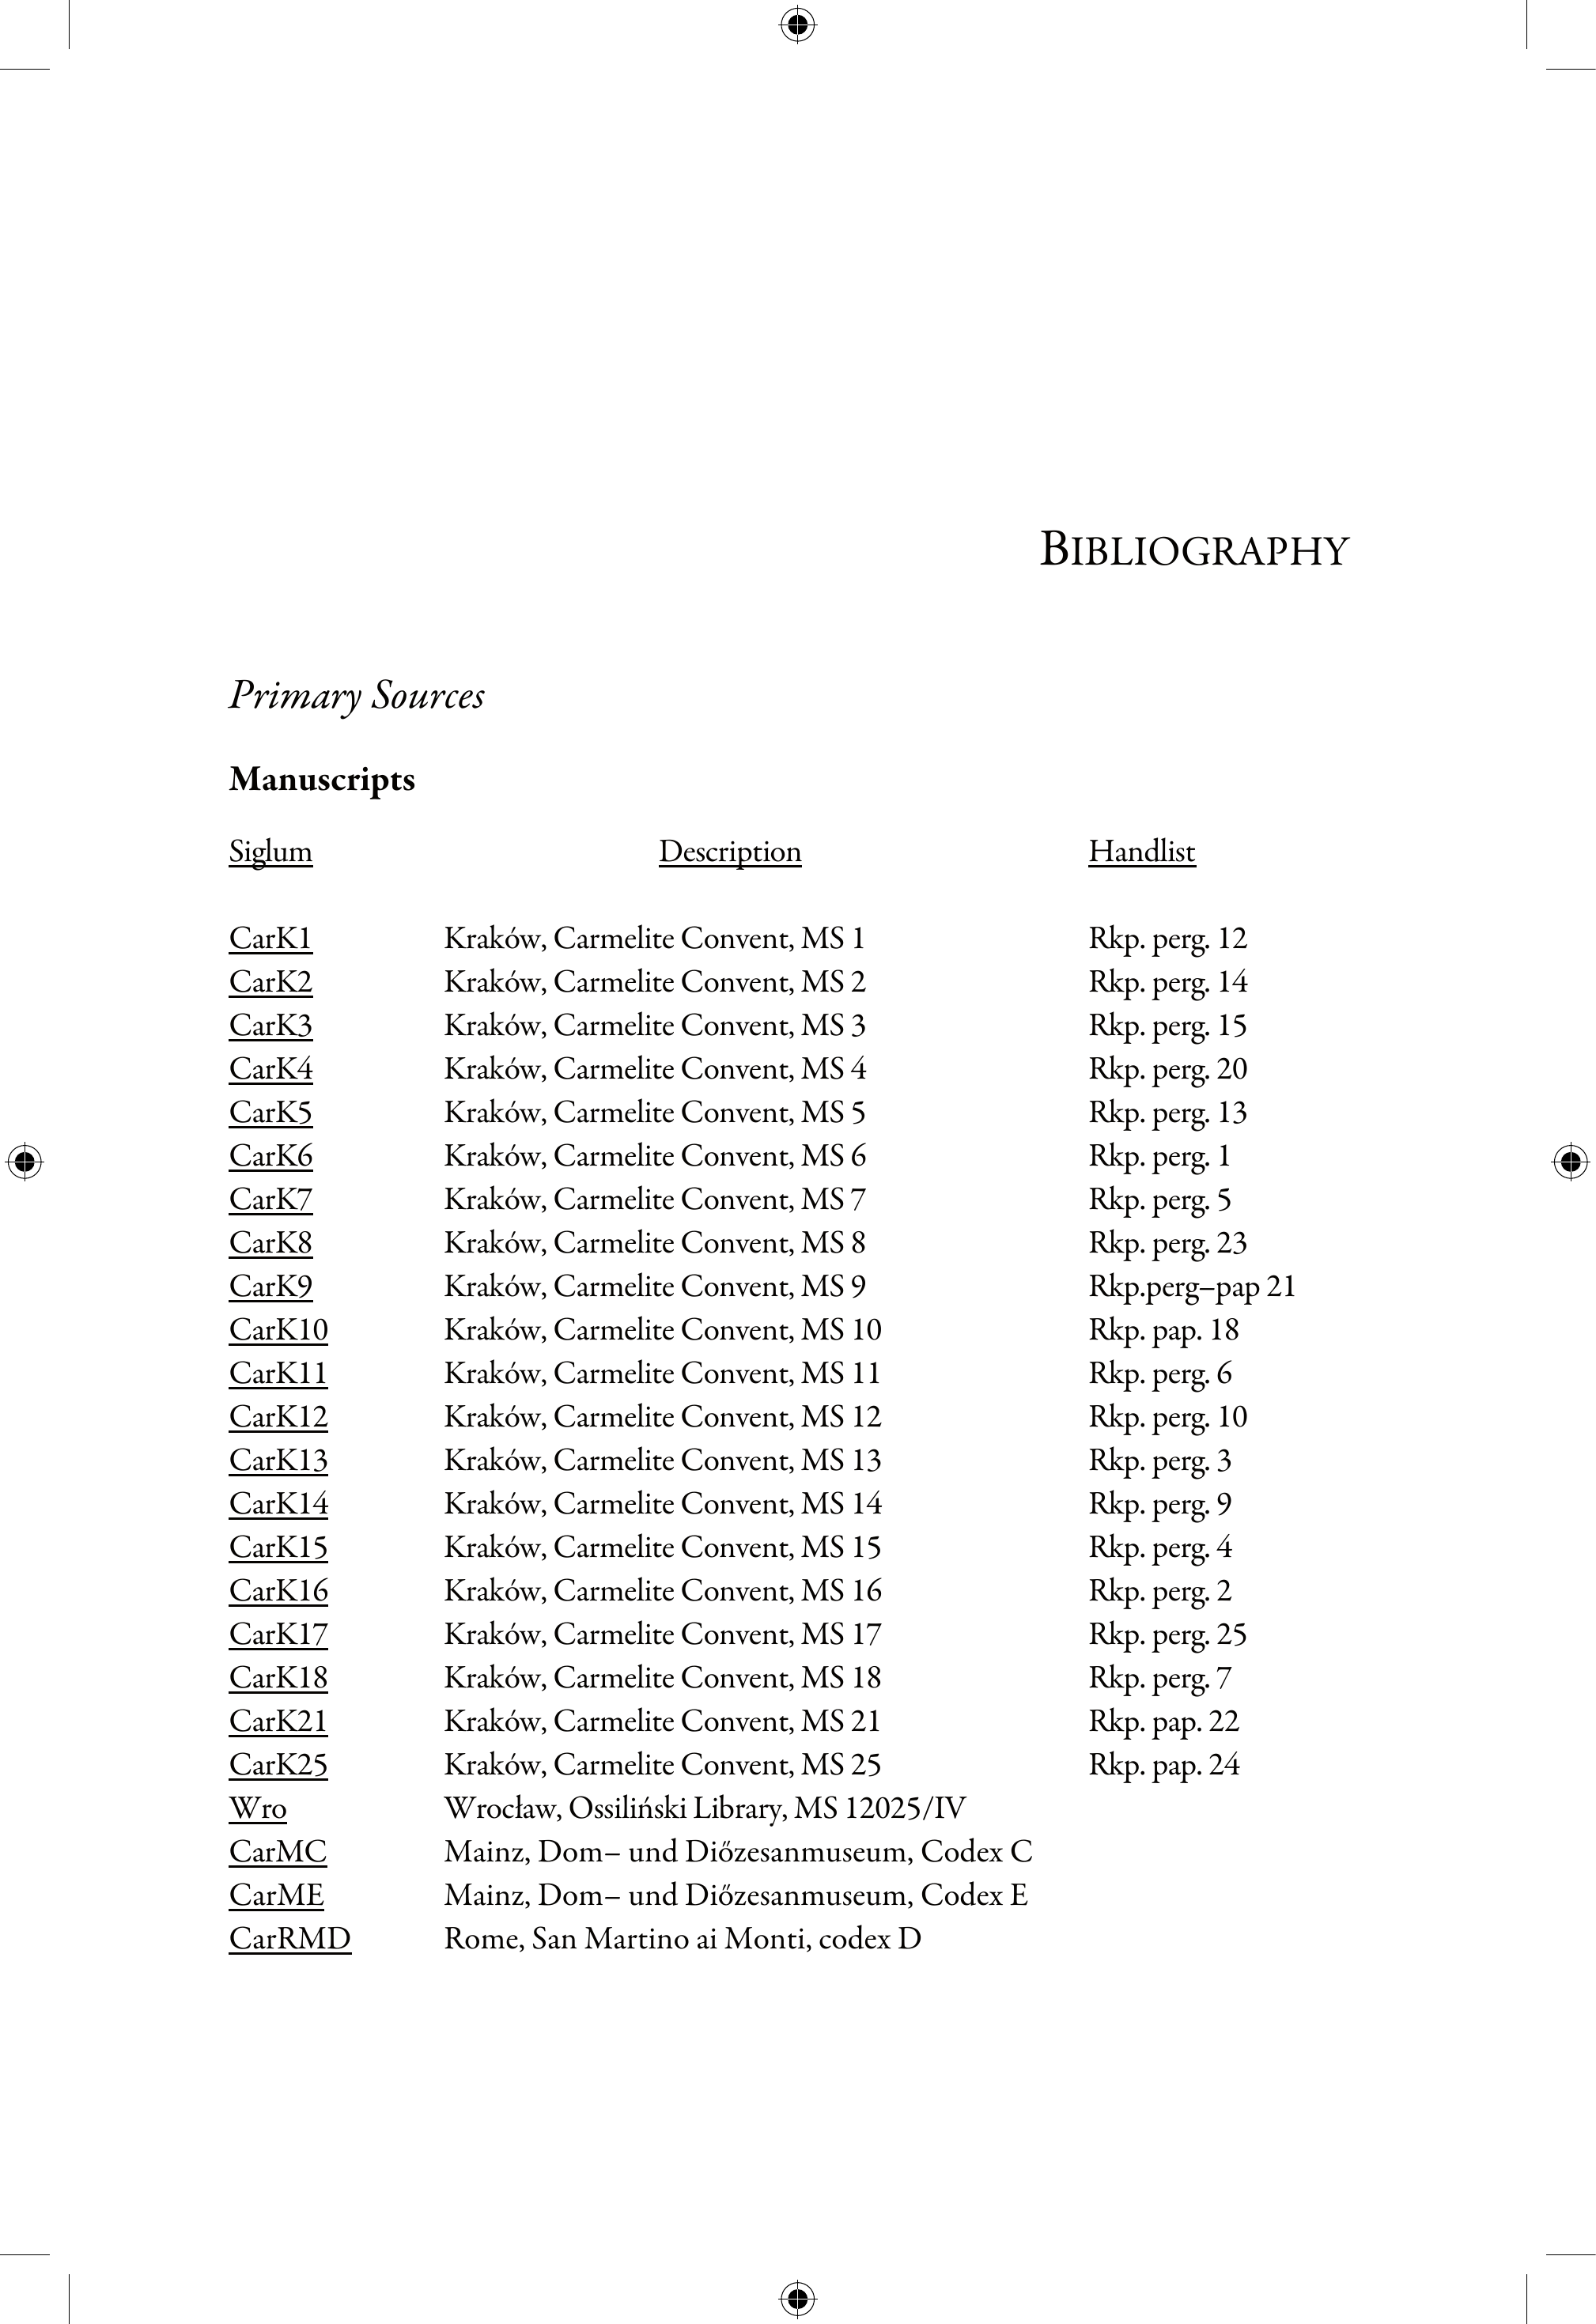 BIBLIOGRAPHY
Primary Sources
Manuscripts
Siglum Description Handlist
CarK1 Kraków, Carmelite Convent, MS 1 Rkp. perg. 12
CarK2 Kraków, Carmelite Convent, MS 2 Rkp. perg. 14
CarK3 Kraków, Carmelite Convent, MS 3 Rkp. perg. 15
CarK4 Kraków, Carmelite Convent, MS 4 Rkp. perg. 20
CarK5 Kraków, Carmelite Convent, MS 5 Rkp. perg. 13
CarK6 Kraków, Carmelite Convent, MS 6 Rkp. perg. 1
CarK7 Kraków, Carmelite Convent, MS 7 Rkp. perg. 5
CarK8 Kraków, Carmelite Convent, MS 8 Rkp. perg. 23
CarK9 Kraków, Carmelite Convent, MS 9 Rkp.perg–pap 21
CarK10 Kraków, Carmelite Convent, MS 10 Rkp. pap. 18
CarK11 Kraków, Carmelite Convent, MS 11 Rkp. perg. 6
CarK12 Kraków, Carmelite Convent, MS 12 Rkp. perg. 10
CarK13 Kraków, Carmelite Convent, MS 13 Rkp. perg. 3
CarK14 Kraków, Carmelite Convent, MS 14 Rkp. perg. 9
CarK15 Kraków, Carmelite Convent, MS 15 Rkp. perg. 4
CarK16 Kraków, Carmelite Convent, MS 16 Rkp. perg. 2
CarK17 Kraków, Carmelite Convent, MS 17 Rkp. perg. 25
CarK18 Kraków, Carmelite Convent, MS 18 Rkp. perg. 7
CarK21 Kraków, Carmelite Convent, MS 21 Rkp. pap. 22
CarK25 Kraków, Carmelite Convent, MS 25 Rkp. pap. 24
Wro Wrocław, Ossiliński Library, MS 12025/IV
CarMC Mainz, Dom– und Diőzesanmuseum, Codex C
CarME Mainz, Dom– und Diőzesanmuseum, Codex E
CarRMD Rome, San Martino ai Monti, codex D